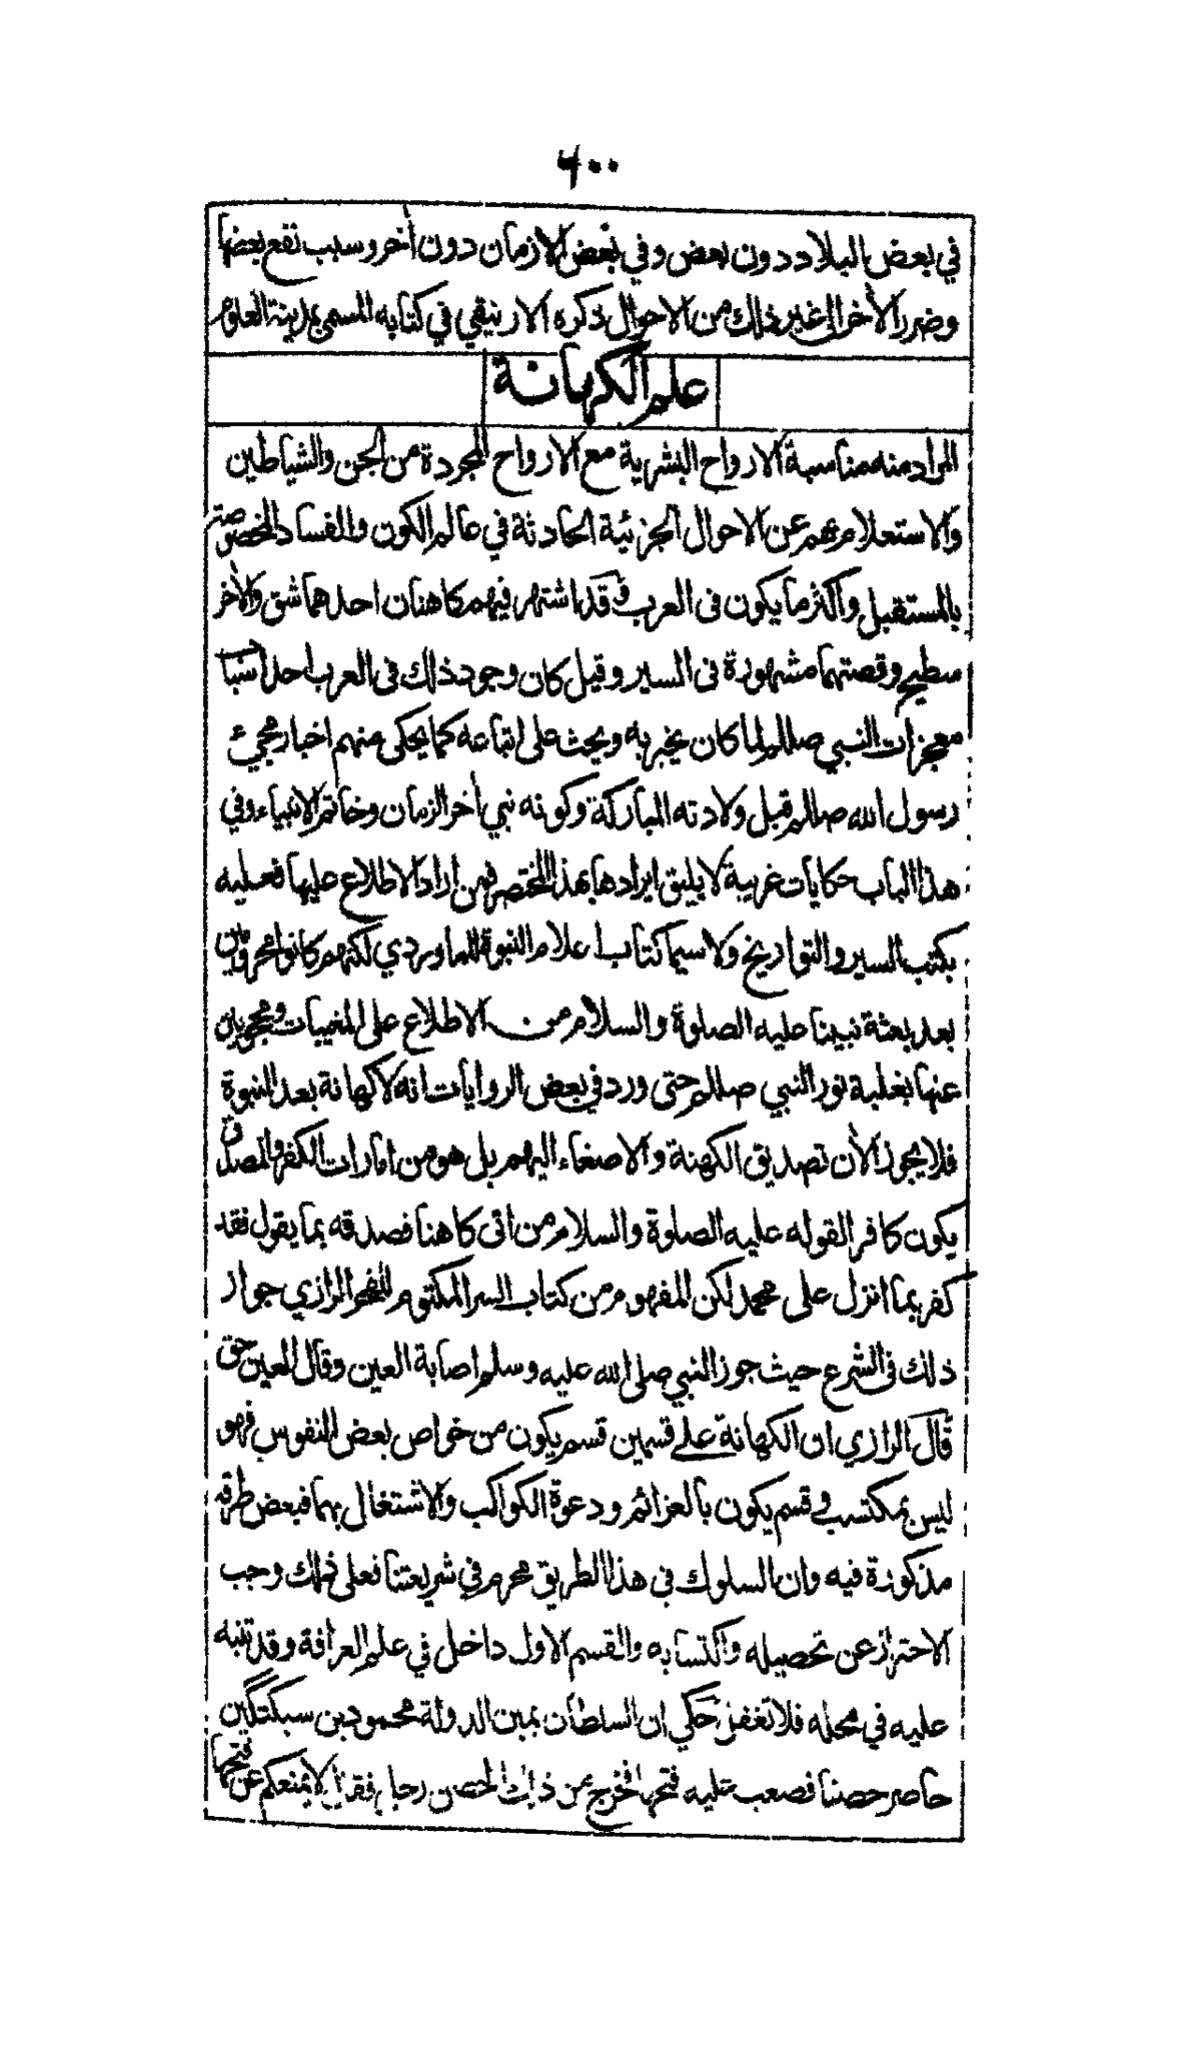 ٦٠٠
في بعض البلاد دون بعض وفي بعض الازمان دون أخر وسبب نفع بعضها
وضرر الأخر الى غير ذلك من الاحوال ذكره الارنيقي في كتابه المسمى بمدينة العلوم
علم الكهانة
المراد منه مناسبة الارواح البشرية مع الارواح المجردة من الجن والشياطين
والاستعلام بهم عن الاحوال الجزئية الحادثة في عالم الكون والفساد المخصوصة
بالمستقبل واكثر ما يكون فى العرب وقد اشتهر فيهم كاهنان احدهما شق والأخر
سطيح وقصتهما مشهورة فى السير وقيل كان وجود ذلك فى العرب احد اسباب
معجزات النبي صللم لما كان يخبر به ويحث على اتباعه كما يحكى منهم اخبار مجيئ
رسول الله صللم قبل ولادته المباركة وكونه نبي أخر الزمان وخاتم الانبياء وفي
هذا الباب حكايات غريبة لا يليق ايرادها بهذا المختصر فمن اراد الاطلاع عليها فعليه
بكتب السير والتواريخ ولا سيما كتاب اعلام النبوة للماوردي لكنهم كانوا محرومين
بعد بعثة نبينا عليه الصلوة والسلام من الاطلاع على المغيبات ومحجوبين
عنها بغلبة نور النبي صللم حتى ورد في بعض الروايات انه لا كهانة بعد النبوة
فلا يجوز الأن تصديق الكهنة والاصغاء اليهم بل هو من امارات الكفر والمصدق
يكون كافرا لقوله عليه الصلوة والسلام من اتى كاهنا فصدقه بما يقول فقد
كفر بما انزل على محمد لكن المفهوم من كتاب السر المكتوم للفخر الرازي جواز
ذلك فى الشرع حيث جوز النبي صلى الله عليه وسلم اصابة العين وقال العين حق
قال الرازي ان الكهانة على قسمين قسم يكون من خواص بعض النفوس فهو
ليس بمكتسب وقسم يكون بالعزائم ودعوة الكواكب والاشتغال بهما فبعض طرقه
مذكورة فيه وان السلوك فى هذا الطريق محرم في شريعتنا فعلى ذلك وجب
الاحتراز عن تحصيله واكتسابه والقسم الاول داخل في علم العرافة وقد تنبه
عليه في محله فلا تغفل حكي ان السلطان يمين الدولة محمود بن سبكتگين
حاصر حصنا فصعب عليه فتحها فخرج من ذلك الحصن رجل فقال لا يمنعكم عن فتحها